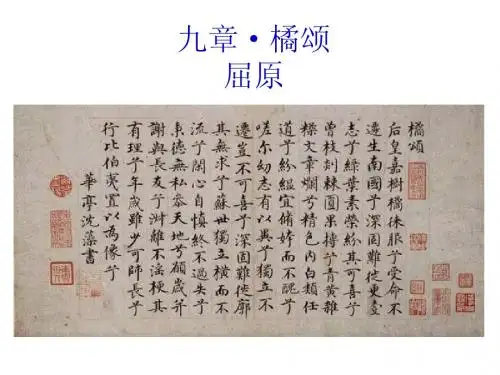 九章·橘颂
屈原
橘頌
后皇嘉樹橘徠服兮受命不
遷生南國兮深固難徙更壹
志兮綠葉素榮紛其可喜兮
曾枝剡棘圓果摶兮青黃雜
糅文章爛兮精色內白類任
道兮紛緼宜脩姱而不醜兮
嗟尔幼志有以異兮獨立不
遷豈不可喜兮深固難徙廓
其無求兮蘇世獨立橫而不
流兮閉心自慎終不過失兮
秉德無私叅天地兮願歲并
謝與長友兮淑離不淫梗其
有理兮年歲雖少可師長兮
行比伯夷置以為像兮
華亭沈藻書